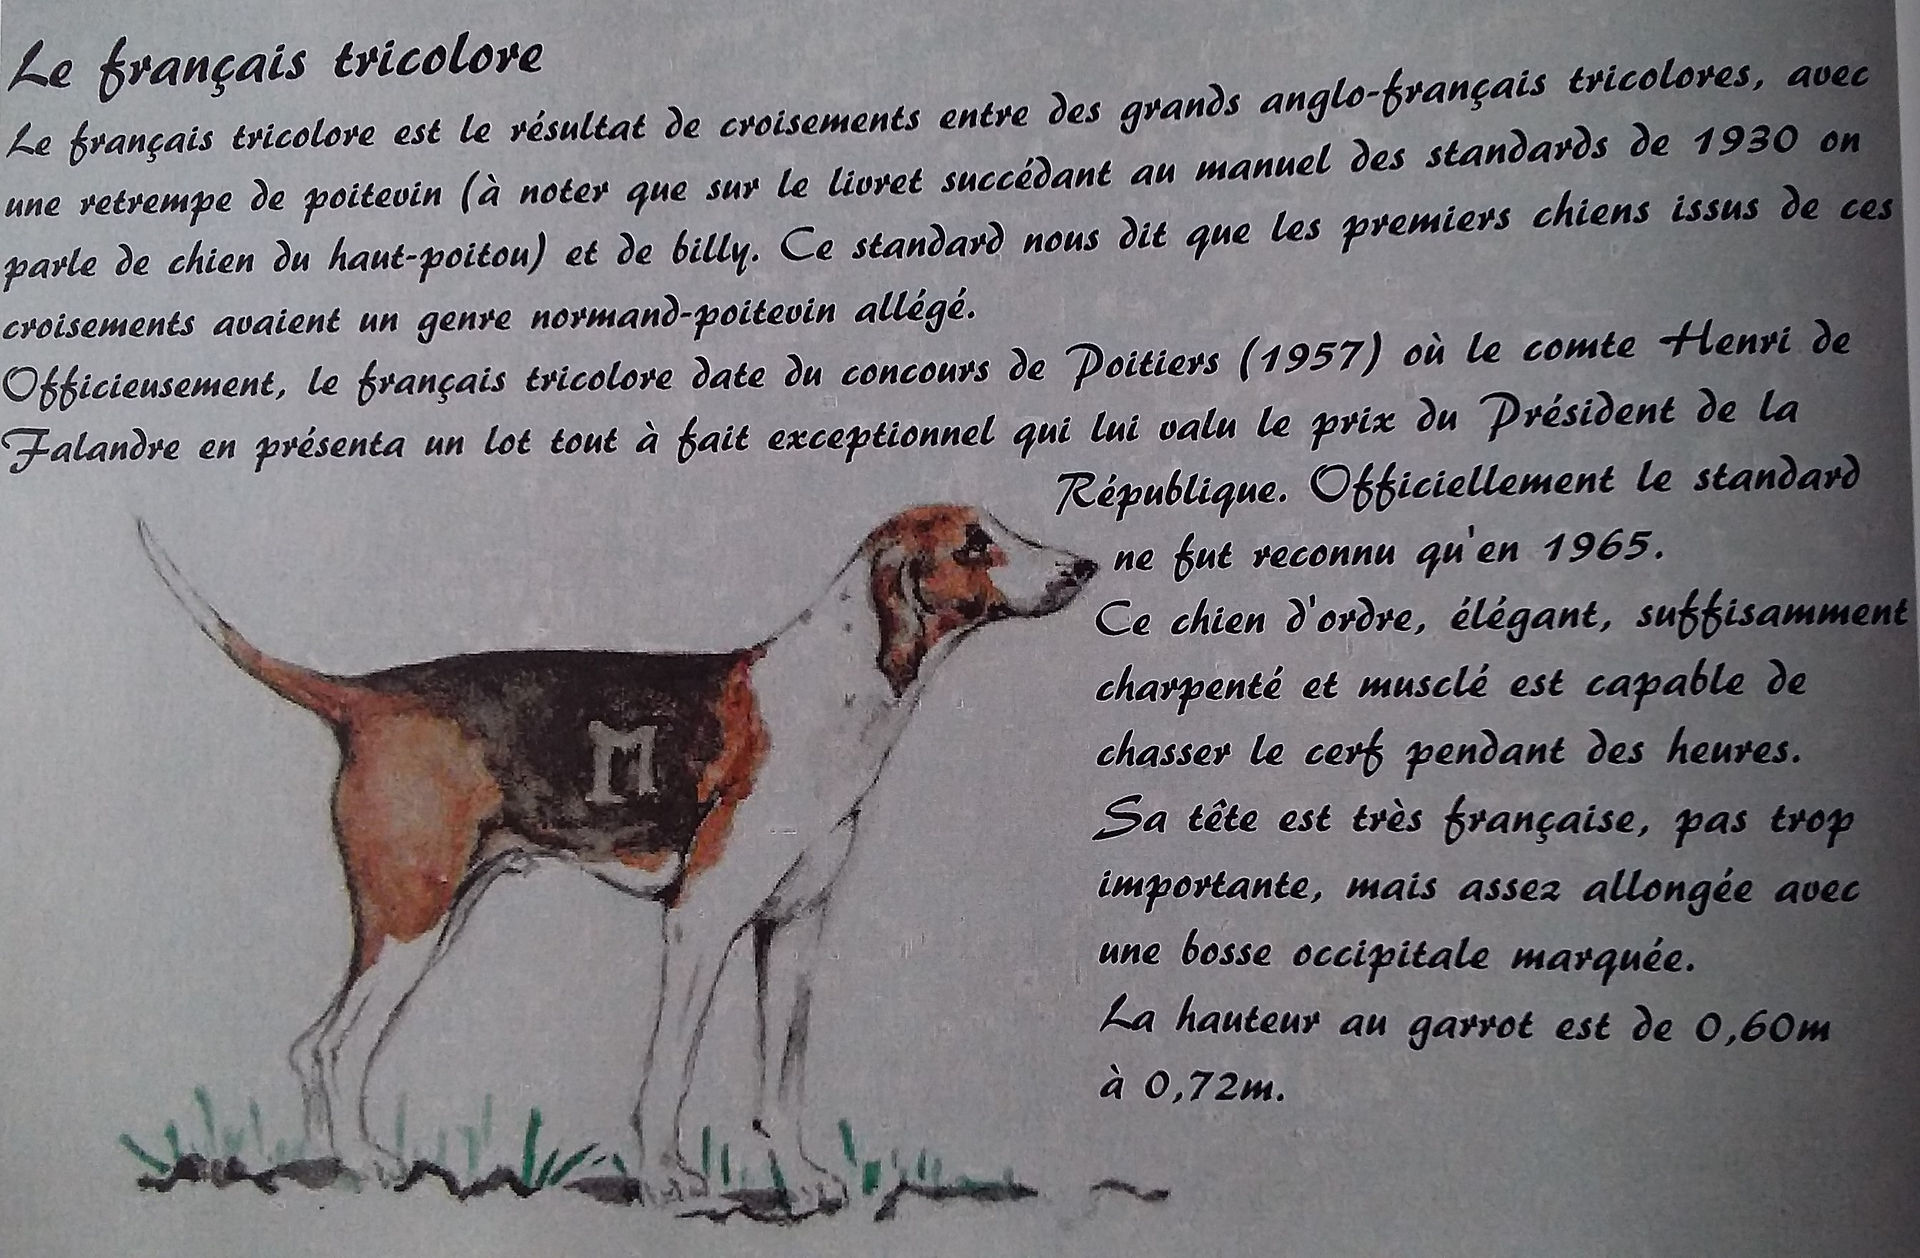 Le français tricolore
Le français tricolore est le résultat de croisements entre des grands anglo-français tricolores, avec
une retrempe de poitevin (à noter que sur le livret succédant au manuel des standards de 1930 on
parle de chien du haut-poitou) et de billy. Ce standard nous dit que les premiers chiens issus de ces
croisements avaient un genre normand-poitevin allégé.
Officieusement, le français tricolore date du concours de Poitiers (1957) où le comte Henri de
Falandre en présenta un lot tout à fait exceptionnel qui lui valu le prix du Président de la
République. Officiellement le standard
ne fut reconnu qu'en 1965.
Ce chien d'ordre, élégant, suffisamment
charpenté et musclé est capable de
chasser le cerf pendant des heures.
Sa tête est très française, pas trop
importante, mais assez allongée avec
une bosse occipitale marquée.
La hauteur au garrot est de 0,60m
à 0,72m.
M